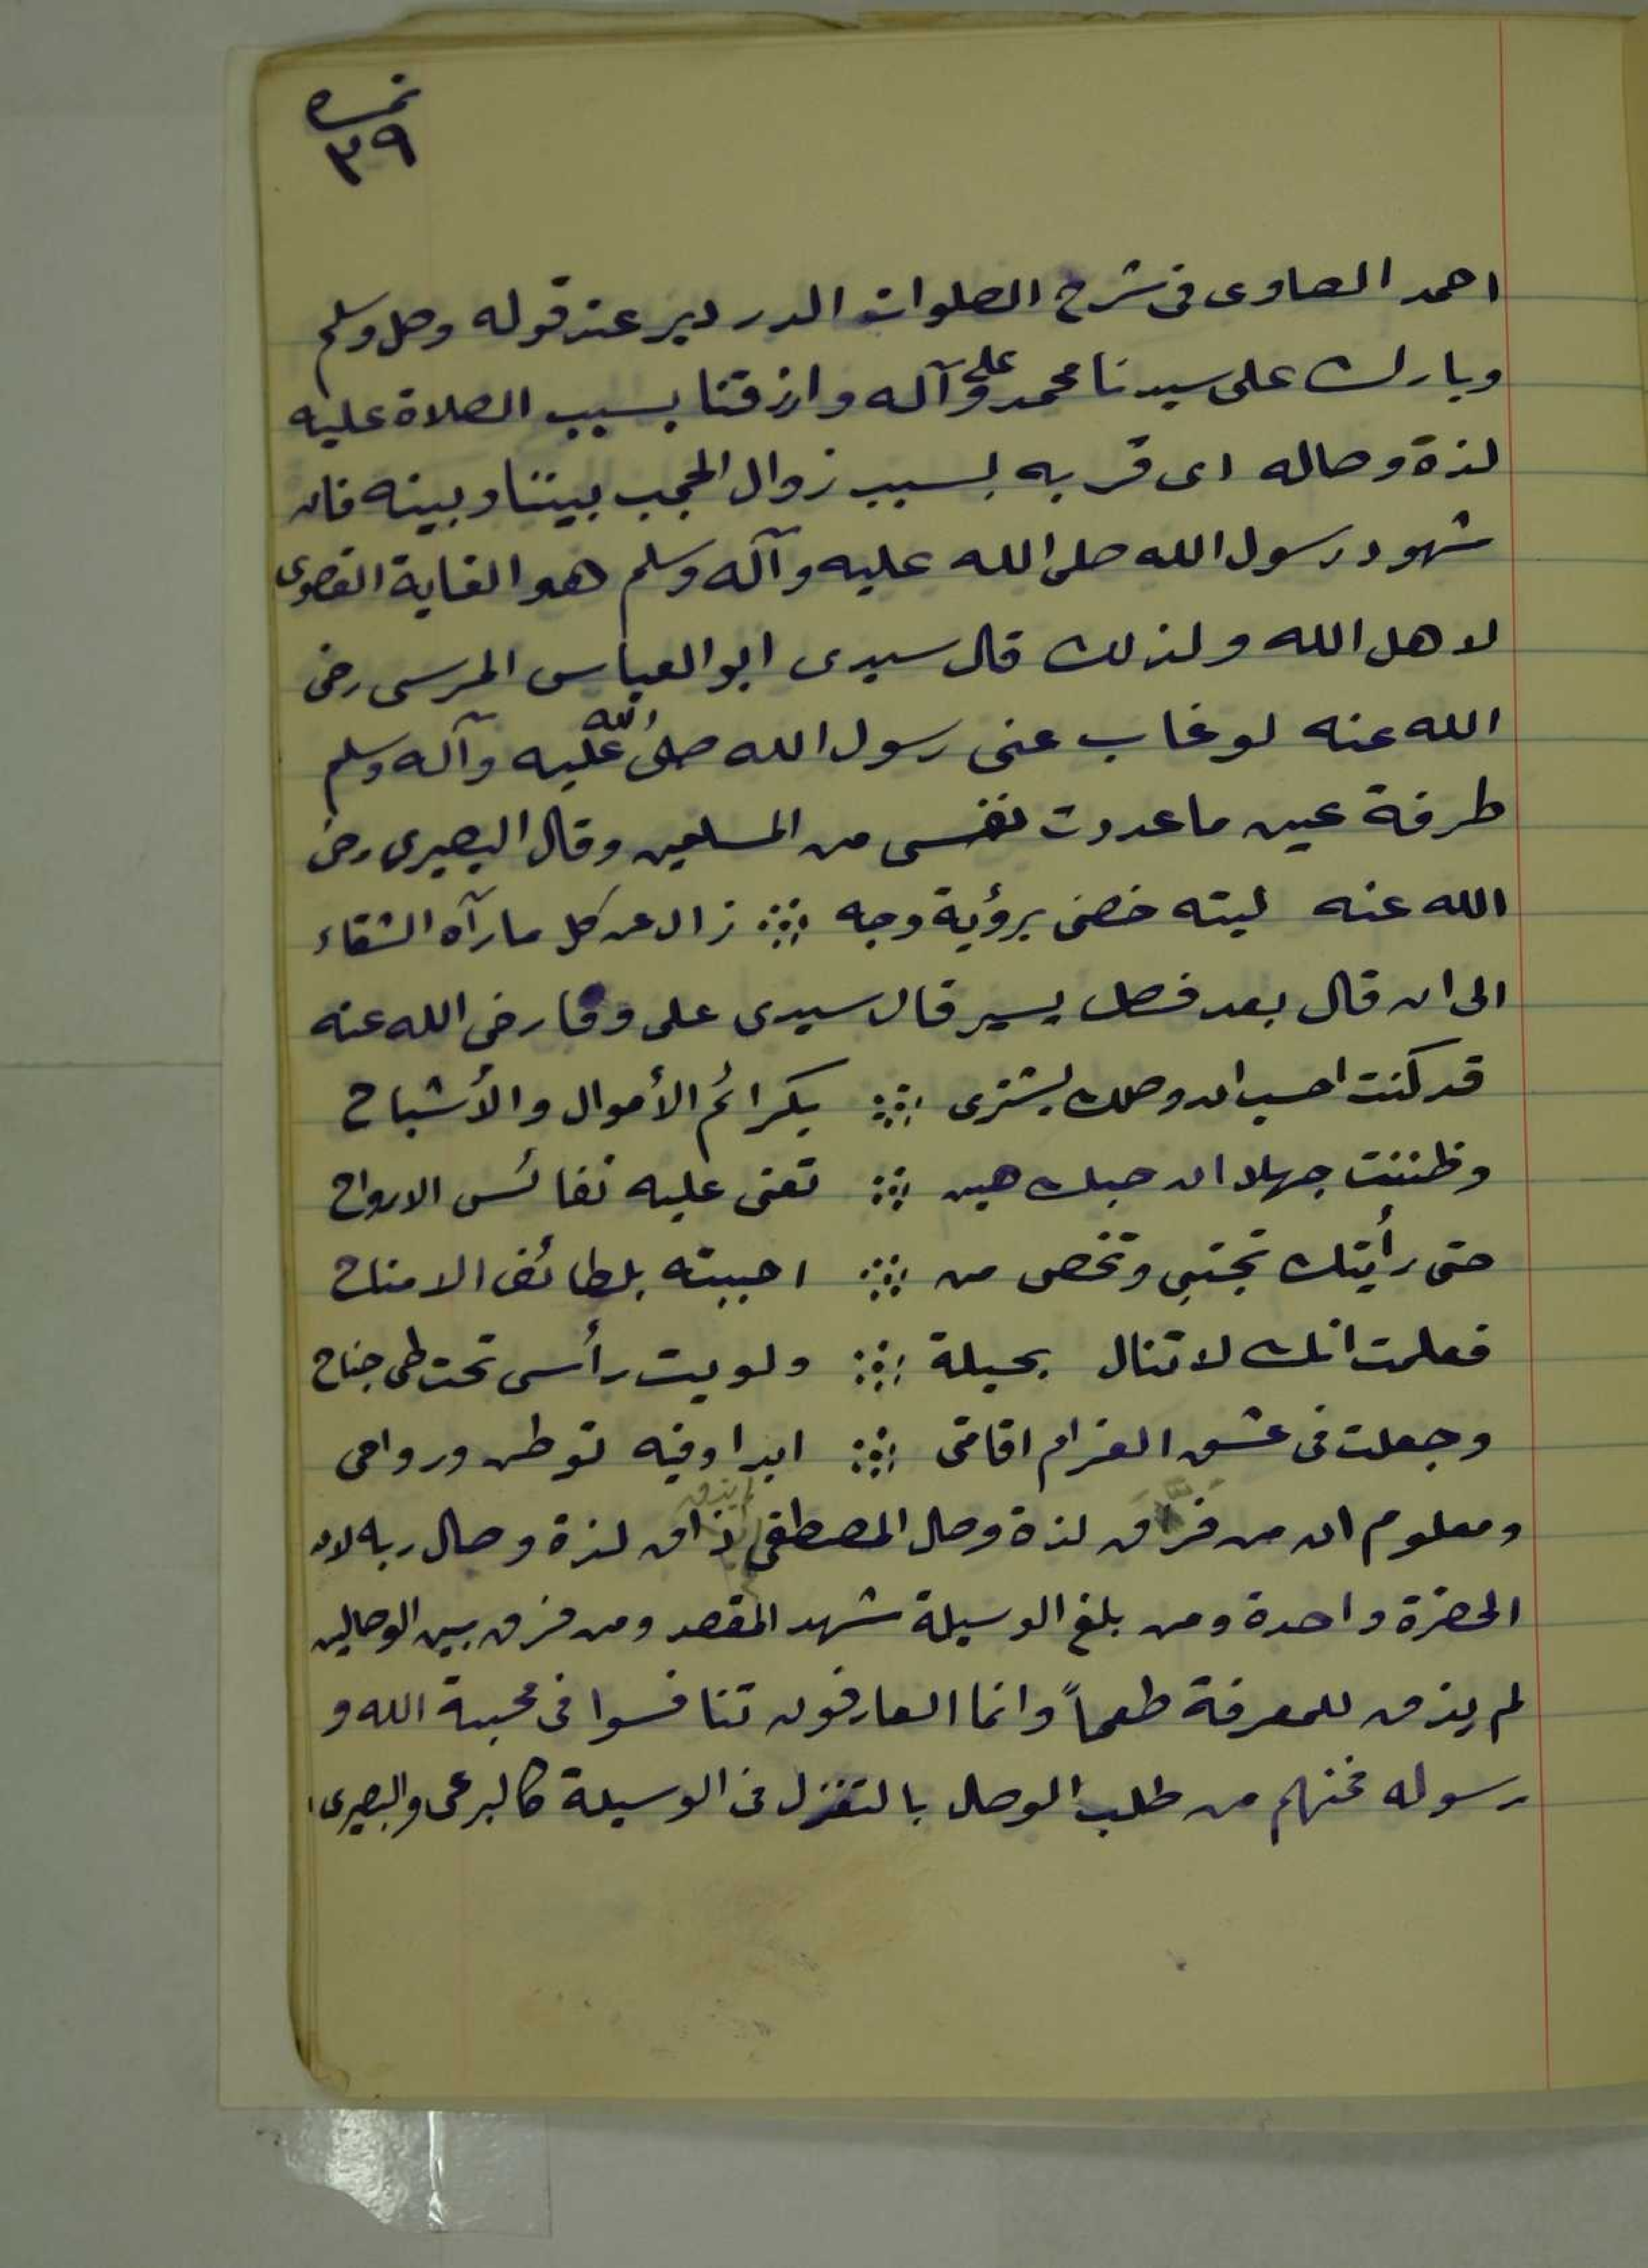 نمره
٣٩
احمد الصاوى فى شرح الصلوات الدردير عند قوله وصل وسلم
وبارك على سيدنا محمد وعلى آله وارزقنا بسبب الصلاة عليه
لذة وصاله اى قربه بسبب زوال الحجب بيننا وبينه فان
شهود رسول الله صلى الله عليه وآله وسلم هو الغاية القصوى
لاهل الله ولذلك قال سيدى ابو العباس المرسى رضى
الله عنه لو غاب عنى رسول الله صلى الله عليه وآله وسلم
طرفة عين ما عددت نفسى من المسلمين وقال البصيرى رضى
الله عنه ليته خصنى برؤية وجه ؞ زال عن كل ما رآه الشقاء
الى ان قال بعد فصل يسير قال سيدى على وفا رضى الله عنه
قد كنت احسب ان وصلك يشترى ؞ بكرائم الأموال والأشباح
وظننت جهلا ان حبك هين ؞ تفنى عليه نفائس الارواح
حتى رأيتك تجتبى وتخص من ؞ احببته بلطائف الامناح
فعلمت انك لا تنال بحيلة ؞ ولويت رأسى تحت طى جناح
وجعلت فى عش الغرام اقامتى ؞ ابدا وفيه توطن ورواحى
ومعلوم ان من فرق لذة وصال المصطفى لم يذق ذاق لذة وصال ربه لان
الحضرة واحدة ومن بلغ الوسيلة شهد المقصد ومن فرق بين الوصالين
لم يذق للمعرفة طعماً وانما العارفون تنافسوا فى محبة الله و
رسوله فمنهم من طلب الوصال بالتغزل فى الوسيلة كالبرعى والبصيرى